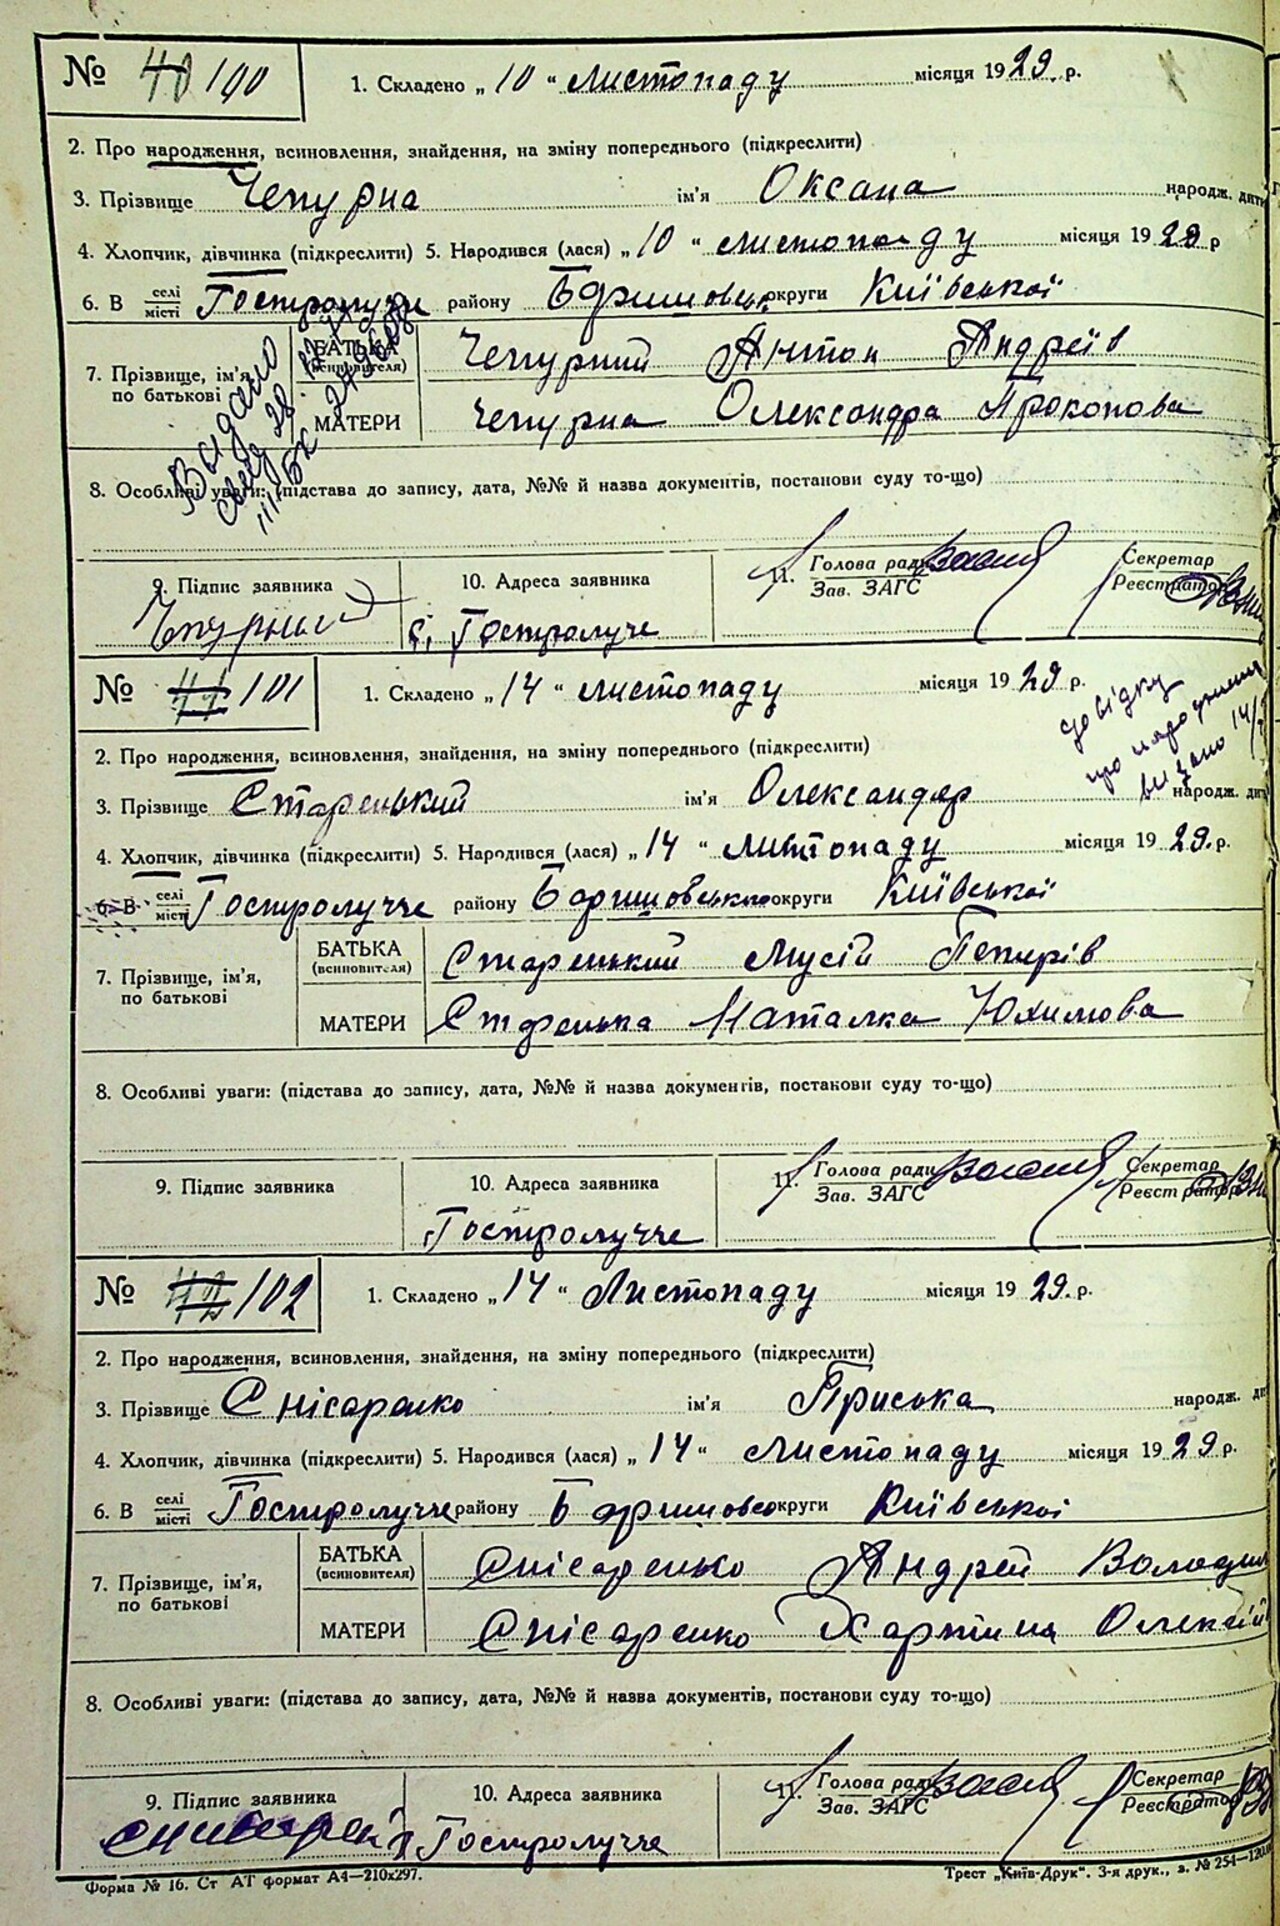 № 40/100 1. Складено „10“ листопаду місяця 1929. р.
2. Про народження, всиновлення, знайдення, на зміну попереднього (підкреслити)
3. Прізвище Чепурна ім'я Оксана народж. дит
4. Хлопчик, дівчинка (підкреслити) 5. Народився (лася) „10“ листопаду місяця 1929 р
6. В селі місті Гостролучче району Баришовськ округи Київської
Видано
7. Прізвище, ім'я по батькові
БАТЬКА (всиновителя) Чепурний Антон Андреїв
МАТЕРИ Чепурна Олександра Прокопова
8. Особливі уваги: (підстава до запису, дата, №№ й назва документів, постанови суду то-що)
9. Підпис заявника 10. Адреса заявника 11. Голова ради Зав. ЗАГС Секретар Реєстратор
Чепурний с. Гостролуче
№ 41/101 1. Складено „14“ листопаду місяця 1929 р.
довідку
про народження
видано 14/
2. Про народження, всиновлення, знайдення, на зміну попереднього (підкреслити)
3. Прізвище Старенький ім'я Олександр народж. дит
4. Хлопчик, дівчинка (підкреслити) 5. Народився (лася) „14“ листопаду місяця 1929. р.
6. В селі місті Гостролучче району Баришовського округи Київської
7. Прізвище, ім'я, по батькові
БАТЬКА (всиновителя) Старенький Мусій Петрів
МАТЕРИ Стренька Наталка Юхимова
8. Особливі уваги: (підстава до запису, дата, №№ й назва документів, постанови суду то-що)
9. Підпис заявника 10. Адреса заявника 11. Голова ради Зав. ЗАГС Секретар Реєстратор
Гостролучче
№ 42/102 1. Складено „14“ Листопаду місяця 1929. р.
2. Про народження, всиновлення, знайдення, на зміну попереднього (підкреслити)
3. Прізвище Снісаренко ім'я Приська народж. ди
4. Хлопчик, дівчинка (підкреслити) 5. Народився (лася) „14“ Листопаду місяця 1929 р.
6. В селі місті Гостролучче району Баришовсь округи Київської
7. Прізвище, ім'я, по батькові
БАТЬКА (всиновителя) Снісаренько Андрей Володим
МАТЕРИ Снісаренко Хартина Олексій
8. Особливі уваги: (підстава до запису, дата, №№ й назва документів, постанови суду то-що)
9. Підпис заявника 10. Адреса заявника 11. Голова ради Зав. ЗАГС Секретар Реєстратор
Гостролучче
Форма № 16. Ст АТ формат А4—210х297. Трест „Київ-Друк“. 3-я друк., з. № 254—120